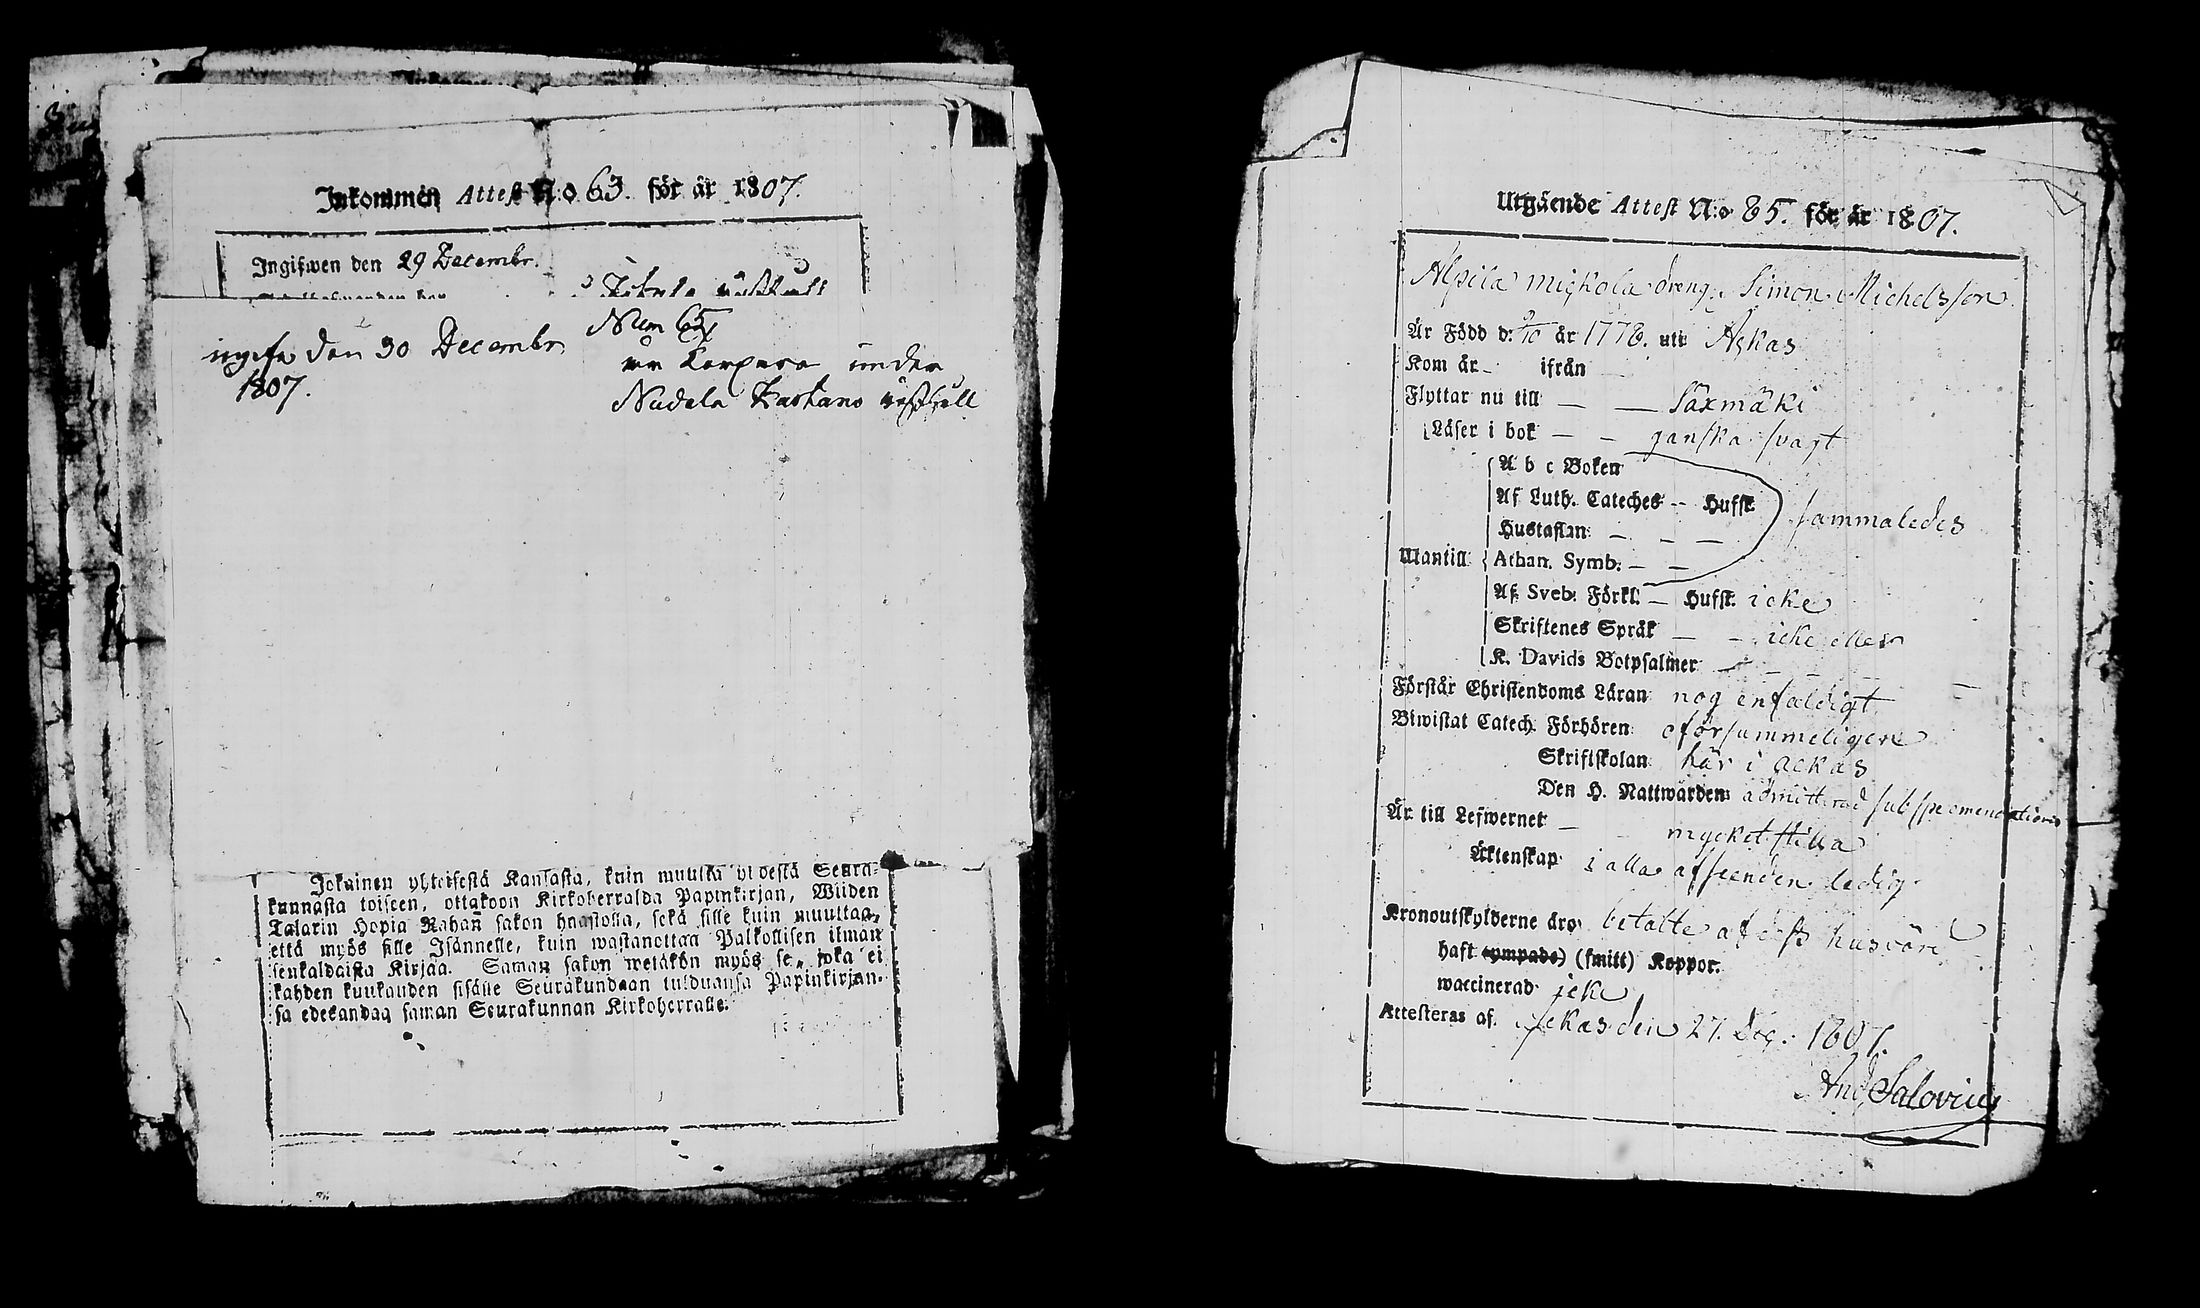 Inkommen Attest N:o 63. för år 1807.
Ingifwen den 29 Decembr.
Num 65
ingifn den 30 Decembr
1807.
under
Jokainen yhteisestä Kansasta, kuin muutta yhdestä Seura-
kunnasta toiseen, ottakoon Kirkoherralda Papinkirjan, Wiiden
Talarin Hopia Rahan sakon haastolla, sekä sille kuin muuttaa,
että myös sille Isännelle, kuin wastanottaa Palkollisen ilman
senkaldaista Kirjaa. Saman sakon wetäkön myös se, joka ei
kahden kuukauden sisälle Seurakundaan tulduansa Papinkirjan-
sa edesandaa saman Seurakunnan Kirkoherralle.
Utgående Attest N:o 85. för år 1807.
Alpila Mickola dreng. Simon Michelsson
Är Född d. 9/10 år 1778. uti Ackas
Kom år — ifrån —
Flyttar nu till — — Säxmäki
Läser i bok — — ganska svagt
A b c Boken
Af Luth. Cateches — Hufst.
Hustaflan — — — sammaledes
Utantill Athan. Symb. — —
Af Sveb. Förkl. — Hufst. icke
Skriftenes Språk — — icke eller
K. Davids Botpsalmer — — —
Förstår Christendoms Läran nog enfaldigt
Biwistat Catech. Förhören oförsummeligen
Skriftskolan här i Ackas
Den H. Nattwarden admitterad sub
Är till Lefwernet — mycket stilla
Äktenskap i alla afseenden ledig
Kronoutskylderne äro betalte af dess husbönd
haft (ympade) (smitt) Koppor.
waccinerad icke
Attesteras af. Ackas den 27. Dec. 1807.
And. Salovius